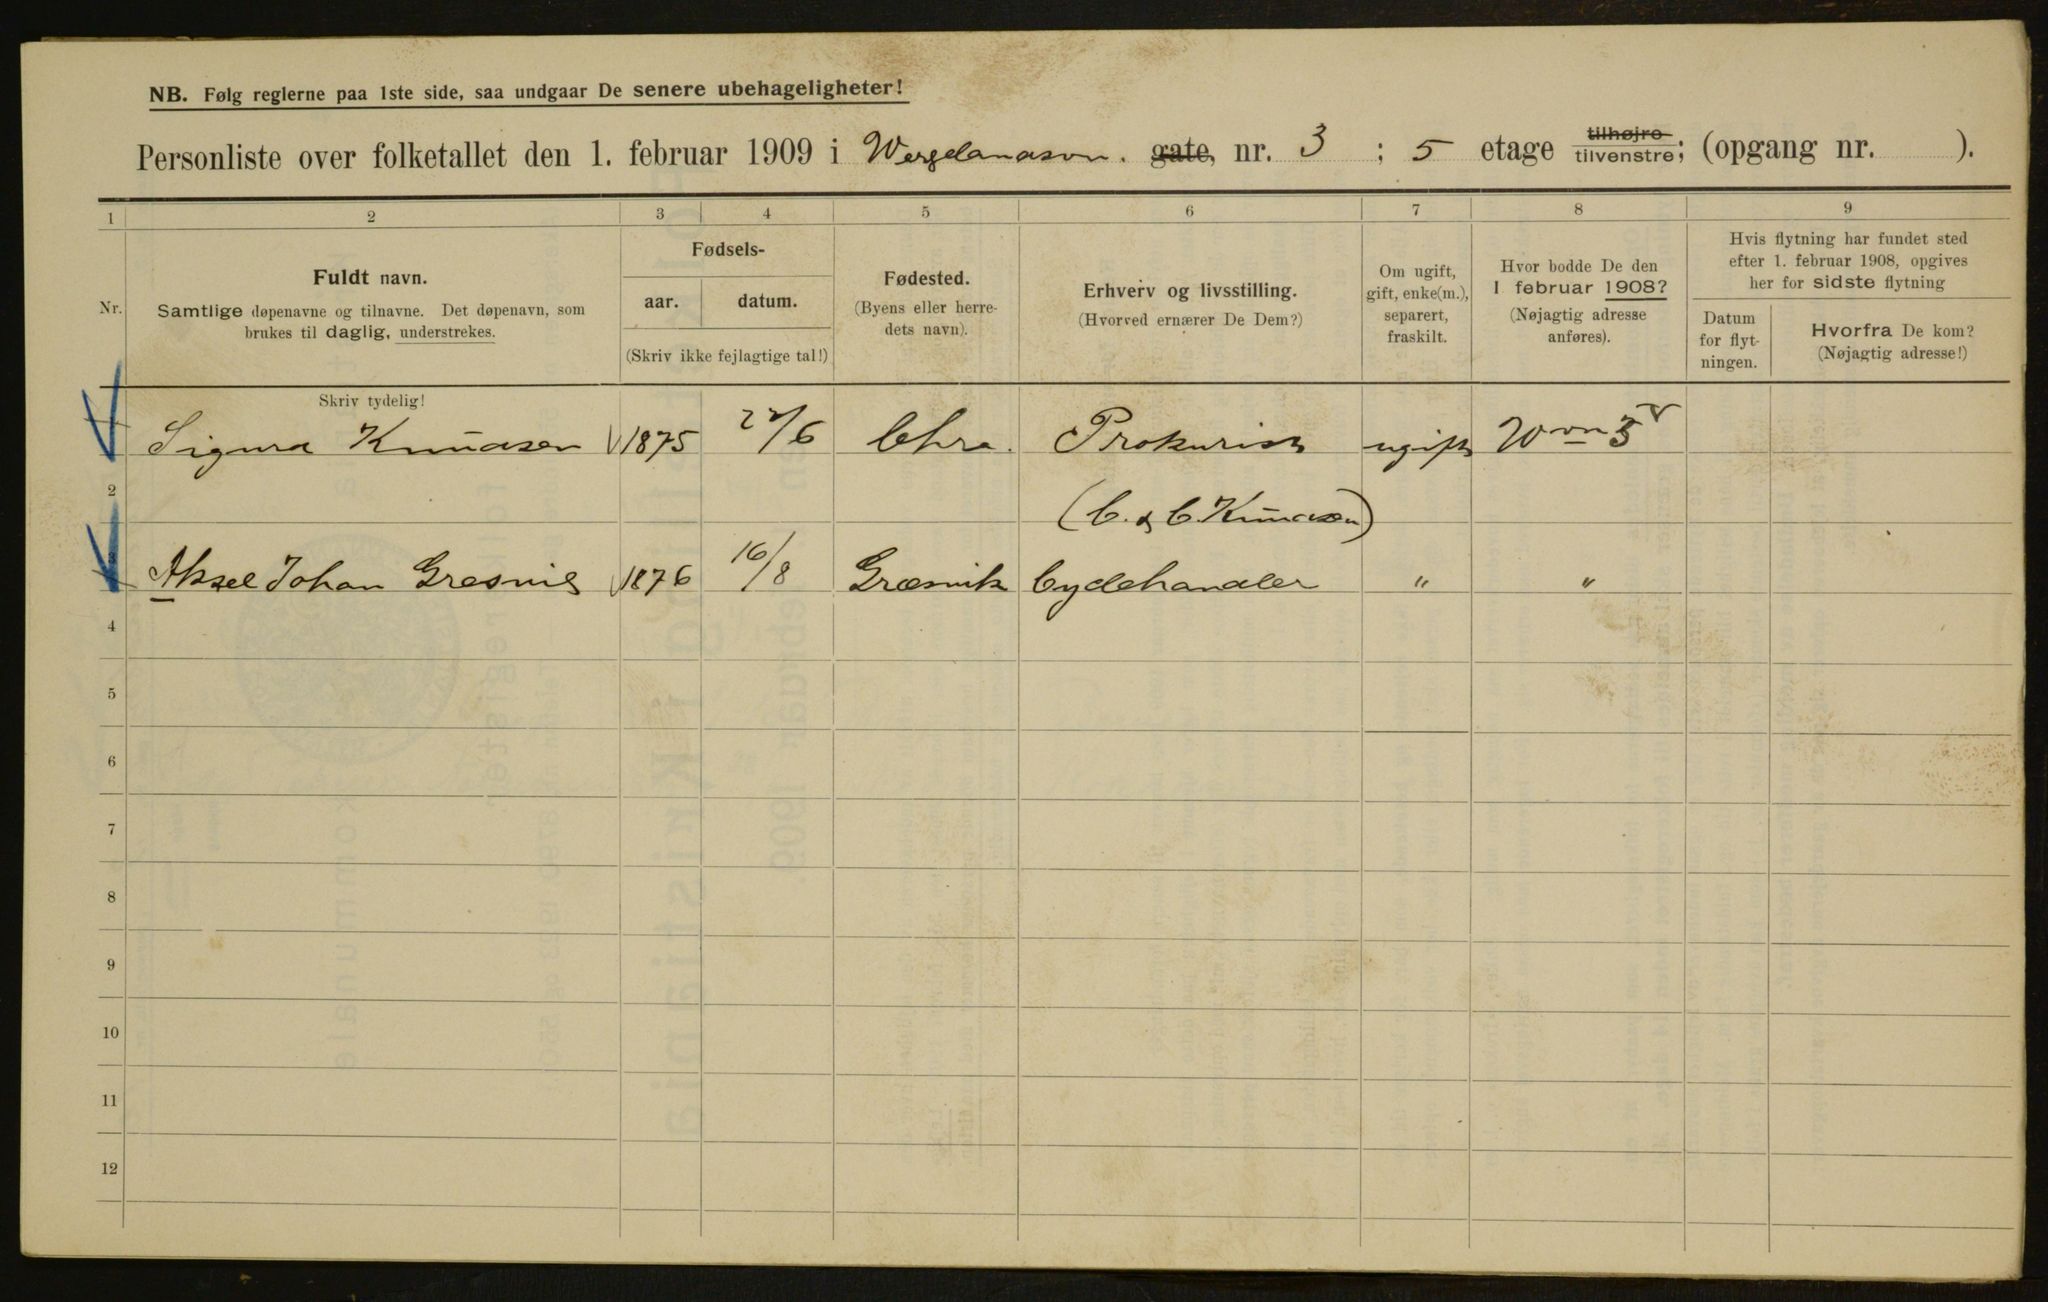 NB. Følg reglerne paa 1ste side, saa undgaar De senere ubehageligheter!
Personliste over folketallet den 1. februar 1909 i Wergelandsvn. gate, nr. 3 ; 5 etage tilhøjre tilvenstre; (opgang nr. ).
1 2 3 4 5 6 7 8 9
Nr.
Fuldt navn.
Samtlige døpenavne og tilnavne. Det døpenavn, som
brukes til daglig, understrekes.
Fødsels-
aar. datum.
(Skriv ikke fejlagtige tal!)
Fødested.
(Byens eller herre-
dets navn).
Erhverv og livsstilling.
(Hvorved ernærer De Dem?)
Om ugift,
gift, enke(m.),
separert,
fraskilt.
Hvor bodde De den
1 februar 1908?
(Nøjagtig adresse
anføres).
Hvis flytning har fundet sted
efter 1. februar 1908, opgives
her for sidste flytning
Datum
for flyt-
ningen.
Hvorfra De kom?
(Nøjagtig adresse!)
Skriv tydelig!
Sigurd Knudsen 1875 /6 Chra. Prokurist ugift Wvn 3 V
2 (C. & C. Knudsen)
3 Aksel Johan Gresvig 1876 16/8 Græsvik Cyclehandler " "
4
5
6
7
8
9
10
11
12